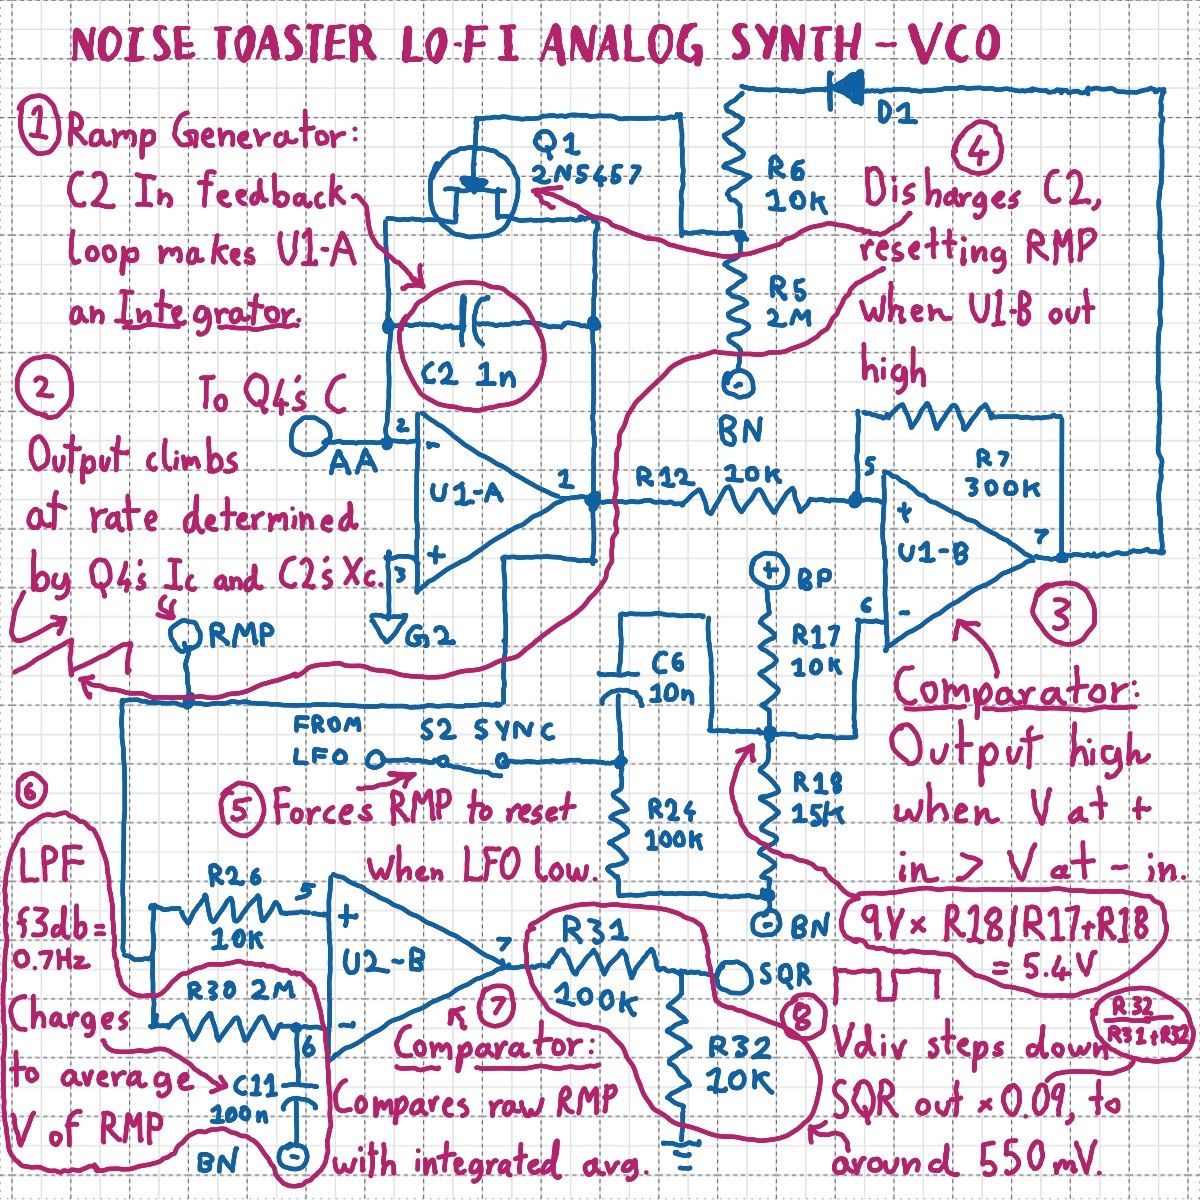 NOISE TOASTER LO-FI ANALOG SYNTH - VCO
1 Ramp Generator:
C2 In feedback
loop makes U1-A
an Integrator.
Q1
2N5457
D1
R6
10K
R5
2M
-
BN
4
Disharges C2,
resetting RMP
when U1-B out
high
C2 1n
2
To Q4's C
AA
Output climbs
at rate determined
by Q4's Ic and C2's Xc.
2
-
U1-A
1
+
3
G2
RMP
R12 10K
R7
300K
5
+
U1-B
7
6
-
+ BP
R17
10K
C6
10n
3
Comparator:
Output high
when V at +
in > V at - in.
FROM
LFO
S2 SYNC
5 Forces RMP to reset
when LFO low.
R24
100K
R18
15K
- BN
9V x R18/R17+R18
= 5.4V
6
LPF
f3db=
0.7Hz
Charges
to average
V of RMP
R26
10K
5
+
U2-B
7
R30 2M
-
6
C11
100n
BN -
R31
100K
SQR
R32
10K
7
Comparator:
Compares raw RMP
with integrated avg.
8
Vdiv steps down
R32
R31+R32
SQR out x 0.09, to
around 550mV.